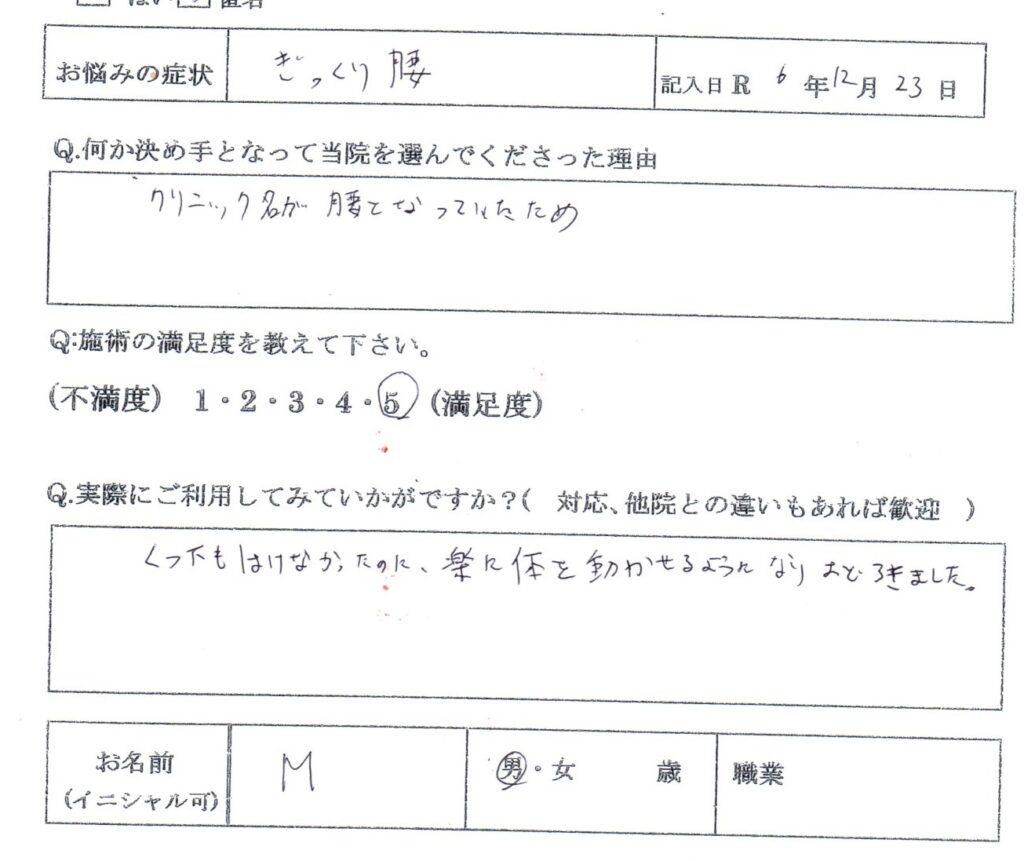 はい 匿名
お悩みの症状 ぎっくり腰 記入日 R 6 年 12 月 23 日
Q.何か決め手となって当院を選んでくださった理由
クリニック名が腰となっていたため
Q:施術の満足度を教えて下さい。
(不満度) 1・2・3・4・5 (満足度)
Q.実際にご利用してみていかがですか？( 対応、他院との違いもあれば歓迎 )
くつ下もはけなかったのに、楽に体を動かせるようになりおどろきました。
お名前 M 男・女 歳 職業
(イニシャル可)